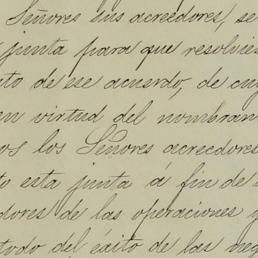 Señores sus acreedores, se
junta para que resolvies
to de ese acuerdo, de cu
en virtud del nombram
os los Señores acreedores
to esta junta á fin de
dores de las operaciones y
todo del éxito de las neg